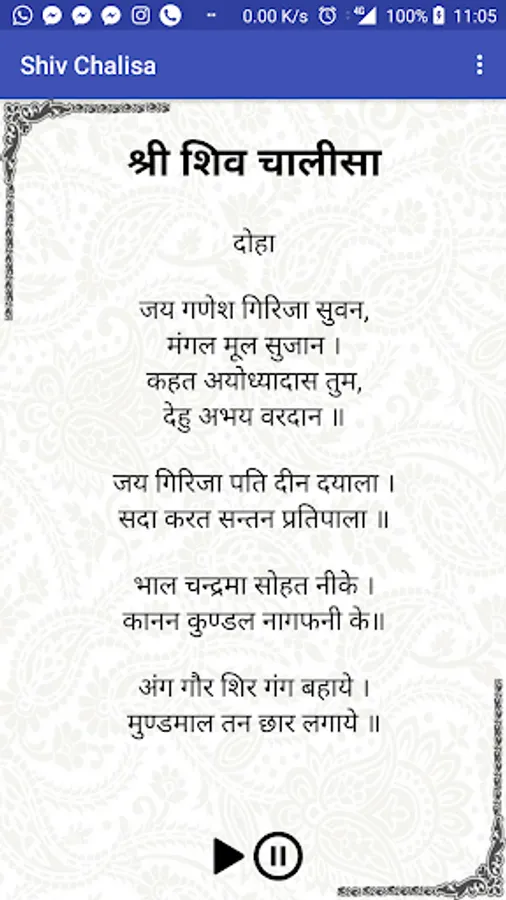 0.00 K/s 4G 100% 11:05
Shiv Chalisa
श्री शिव चालीसा
दोहा
जय गणेश गिरिजा सुवन,
मंगल मूल सुजान ।
कहत अयोध्यादास तुम,
देहु अभय वरदान ॥
जय गिरिजा पति दीन दयाला ।
सदा करत सन्तन प्रतिपाला ॥
भाल चन्द्रमा सोहत नीके ।
कानन कुण्डल नागफनी के॥
अंग गौर शिर गंग बहाये ।
मुण्डमाल तन छार लगाये ॥